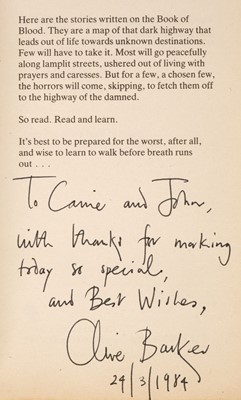 Here are the stories written on the Book of
Blood. They are a map of that dark highway that
leads out of life towards unknown destinations.
Few will have to take it. Most will go peacefully
along lamplit streets, ushered out of living with
prayers and caresses. But for a few, a chosen few,
the horrors will come, skipping, to fetch them off
to the highway of the damned.
So read. Read and learn.
It's best to be prepared for the worst, after all,
and wise to learn to walk before breath runs
out . . .
To Carrie and John,
with thanks for making
today so special,
and Best Wishes,
Clive Barker
24/3/1984